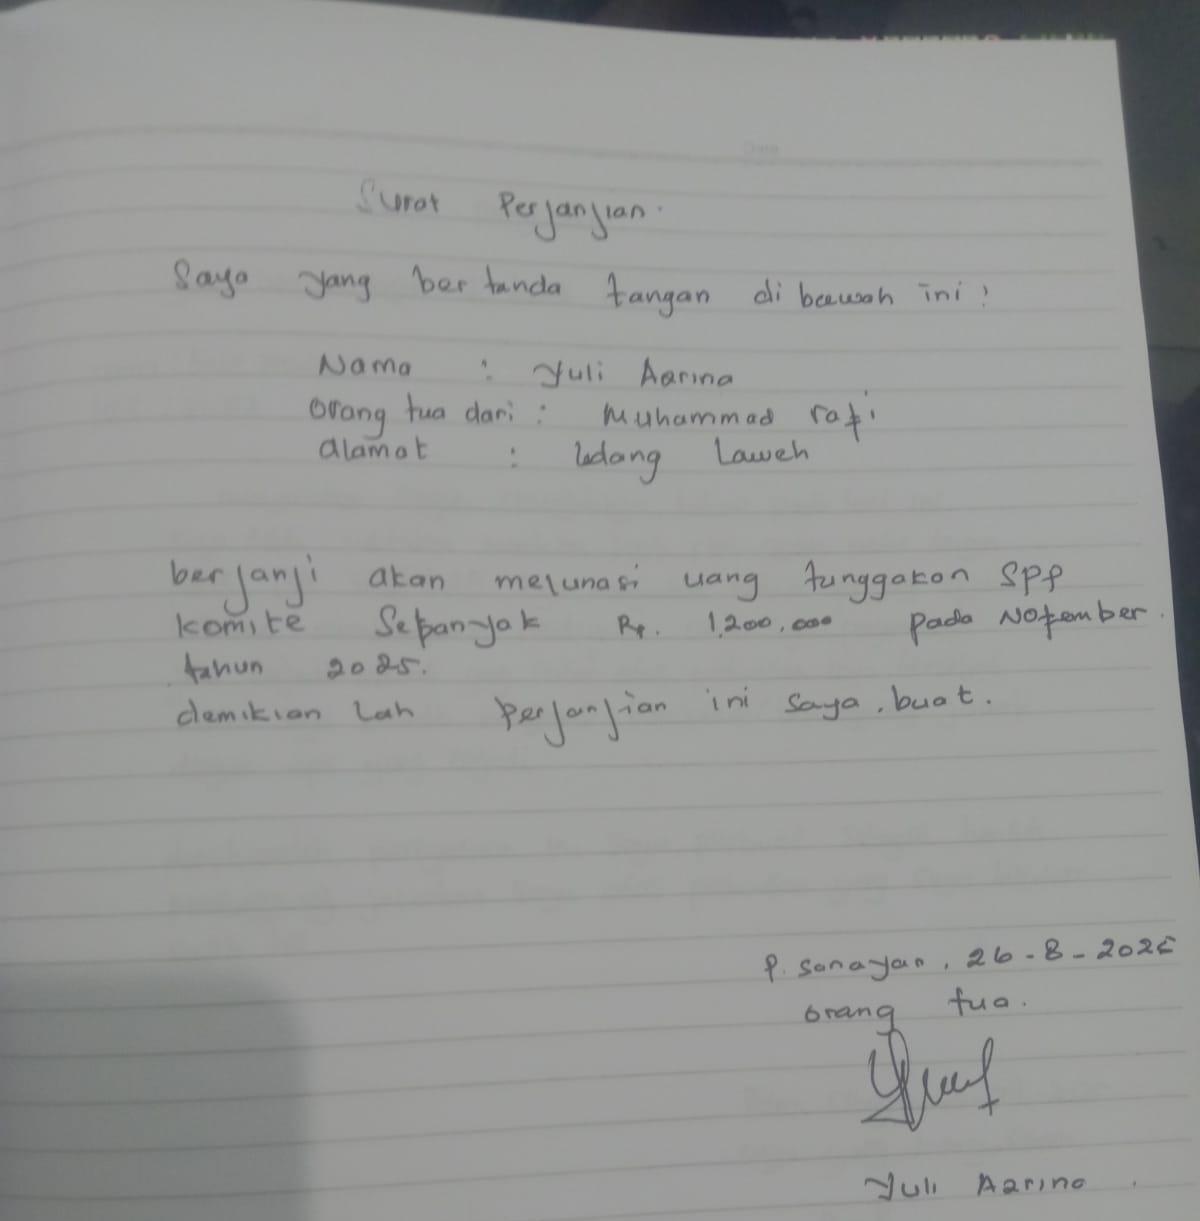 Surat Perjanjian.
Saya yang bertanda tangan di bawah ini:
Nama : Yuli Aarina
orang tua dari : Muhammad rafi
alamat : Ladang Laweh
berjanji akan melunasi uang tunggakan SPP
komite Sebanyak Rp. 1.200.000 pada Nofember
tahun 2025.
demikian Lah perjanjian ini saya buat.
P. Sanayan, 26-8-2025
orang tua.
Yuli Aarina